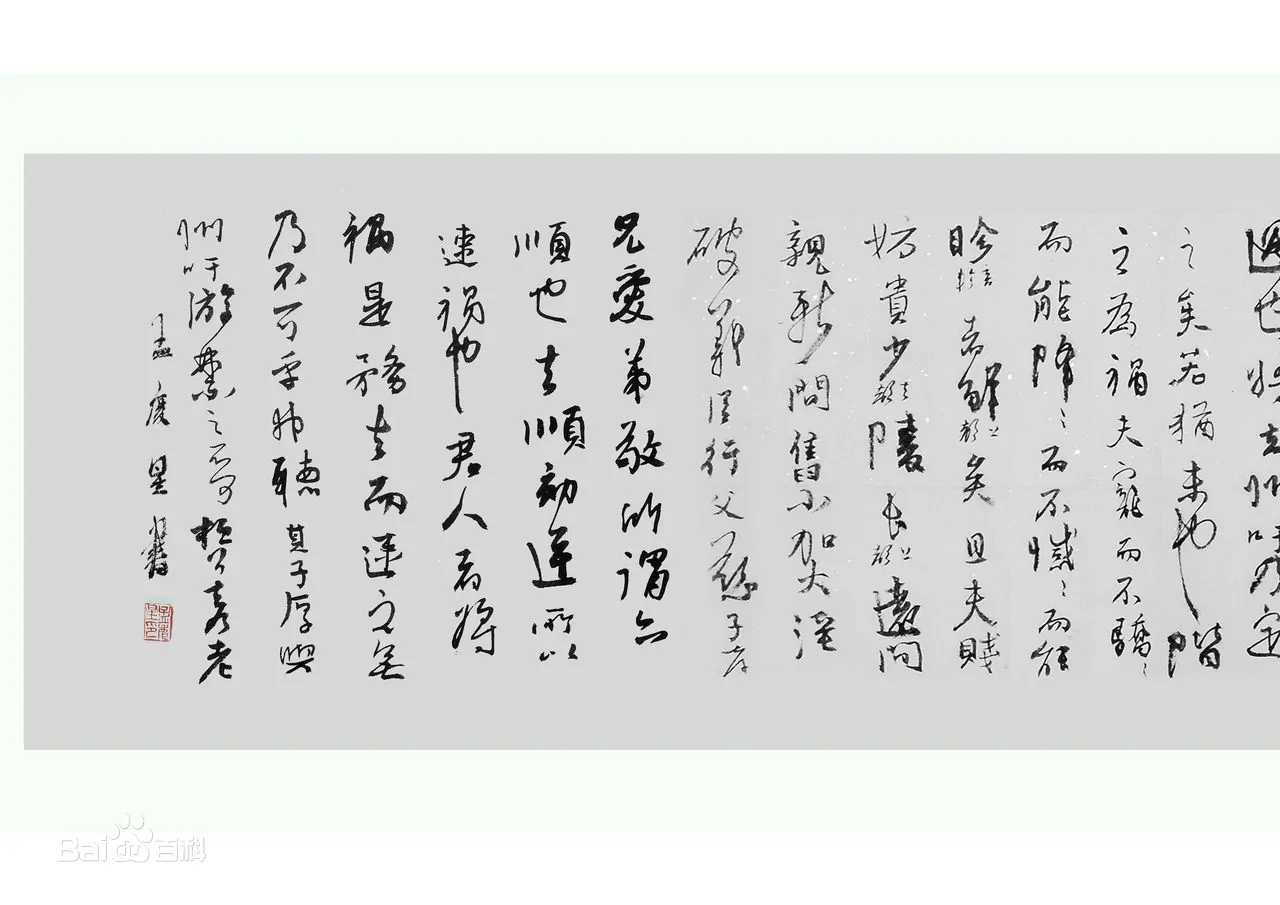 過也將立州吁乃定
之矣若猶未也階
之為禍夫寵而不驕〻
而能降〻而不憾〻而能
眕者鮮矣且夫賤
妨貴少陵長遠間
親新間舊小加大淫
破義臣行父慈子孝
兄愛弟敬所謂六
順也去順効逆所以
速禍也君人者將
禍是務去而速之無
乃不可乎弗聽其子厚與
州吁游禁之不可桓公立乃老
孟慶星書
Bai百科